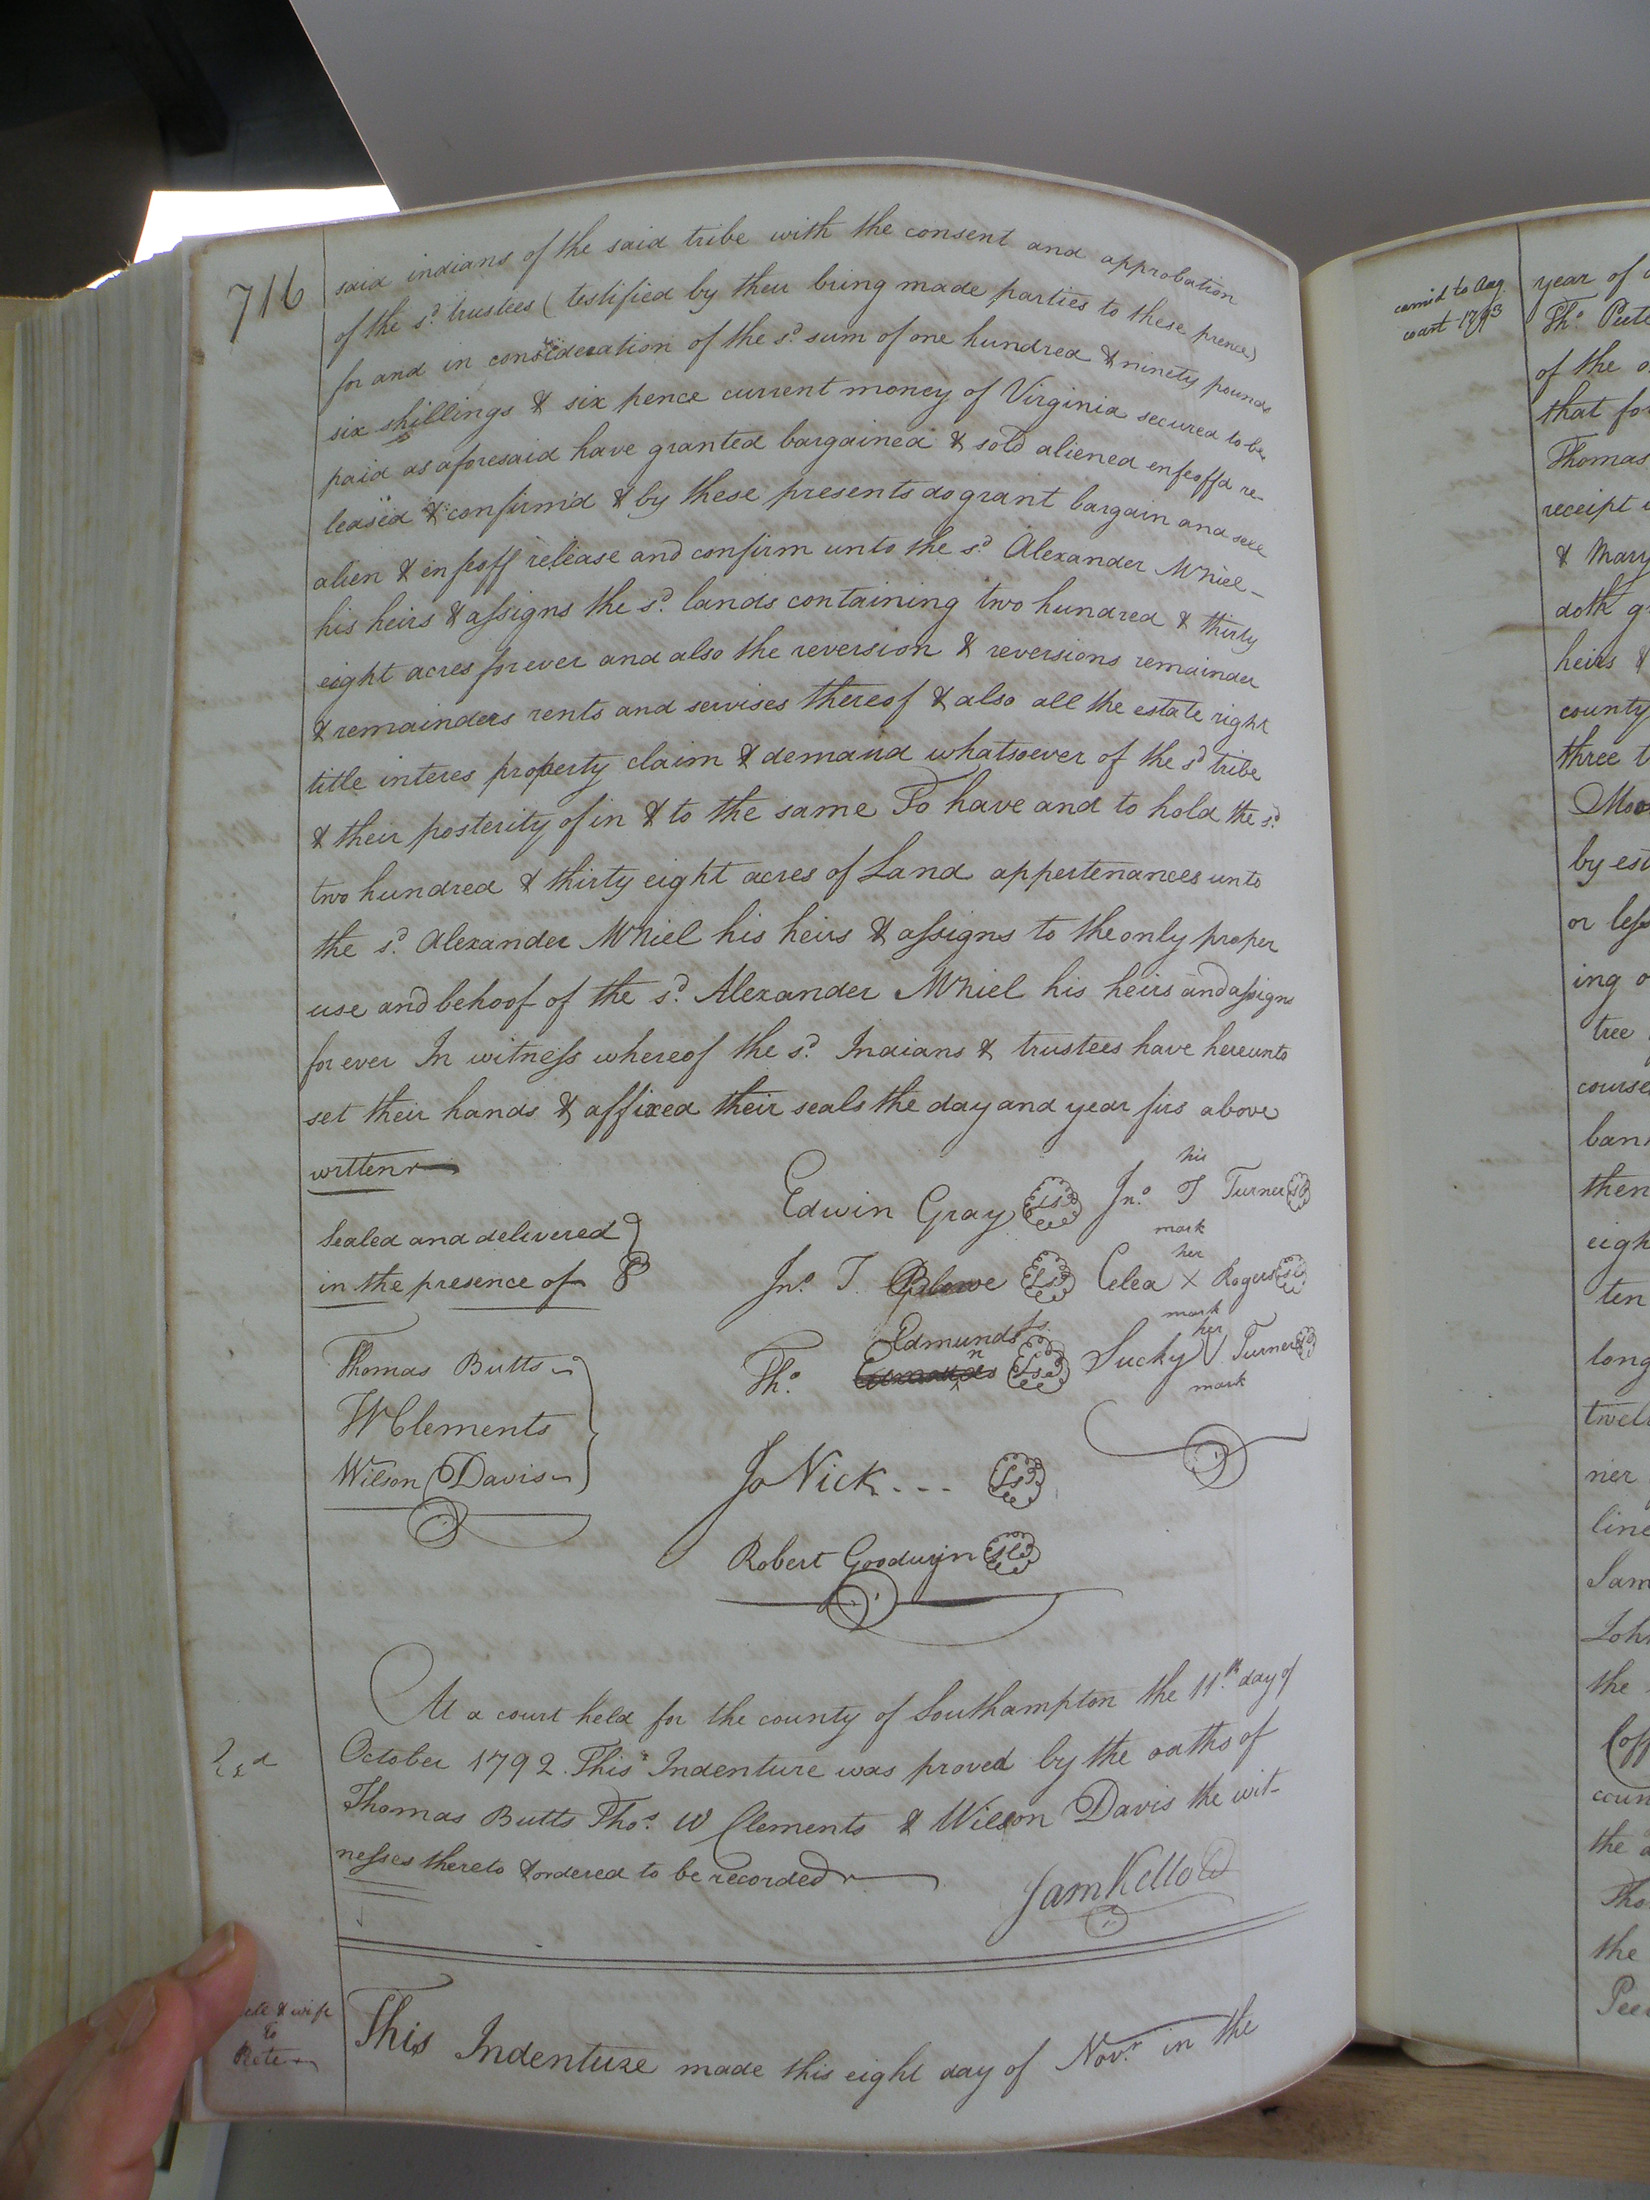 716
said indians of the said tribe with the consent and approbation
of the sd. trustees (testified by their being made parties to these prence)
for and in consideration of the sd. sum of one hundred & ninety pounds
six shillings & six pence current money of Virginia secured to be
paid as aforesaid have granted bargained & sold aliened enfeoffd re-
leased & confirmd & by these presents do grant bargain and sell
alien & enfeoff release and confirm unto the sd. Alexander Mcniel-
his heirs & assigns the sd. lands containing two hundred & thirty
eight acres for ever and also the reversion & reversions remainder
& remainders rents and servises thereof & also all the estate right
title interes property claim & demand whatsoever of the sd tribe
& their posterity of in & to the same To have and to hold the sd.
two hundred & thirty eight acres of Land appertenances unto
the sd. Alexander Mcniel his heirs & assigns to the only proper
use and behoof of the sd. Alexander Mcniel his heirs and assigns
for ever In witness whereof the sd. Indians & trustees have hereunto
set their hands & affixed their seals the day and year firs above
written
Sealed and delivered
in the presence of
Thomas Butts
W Clements
Wilson Davis
Edwin Gray Ls
Jno. T. Blowe Ls
Edmunds
Tho. Ls
Jo Nick... Ls
Robert Goodwyn Ls
his
Jno. T Turner Ls
mark
her
Celea X Rogers Ls
mark
her
Sucky V Turner Ls
mark
At a court held for the county of Southampton the 11th. day of
October 1792. This Indenture was proved by the oaths of
Thomas Butts Thos. W Clements & Wilson Davis the wit-
nesses thereto & ordered to be recorded
Sam Kello
This Indenture made this eight day of Novr. in the
& wife
to
Pete
camid to Aug
court 1793
year of
Tho. Pete
of the
that for
Thomas
receipt
& Mary
doth g
heirs &
county
three t
Moo
by est
or less
ing o
tree
course
bank
then
eigh
ten
long
twel
ner
line
Sam
John
the
coun
the
Tho
the
Pee